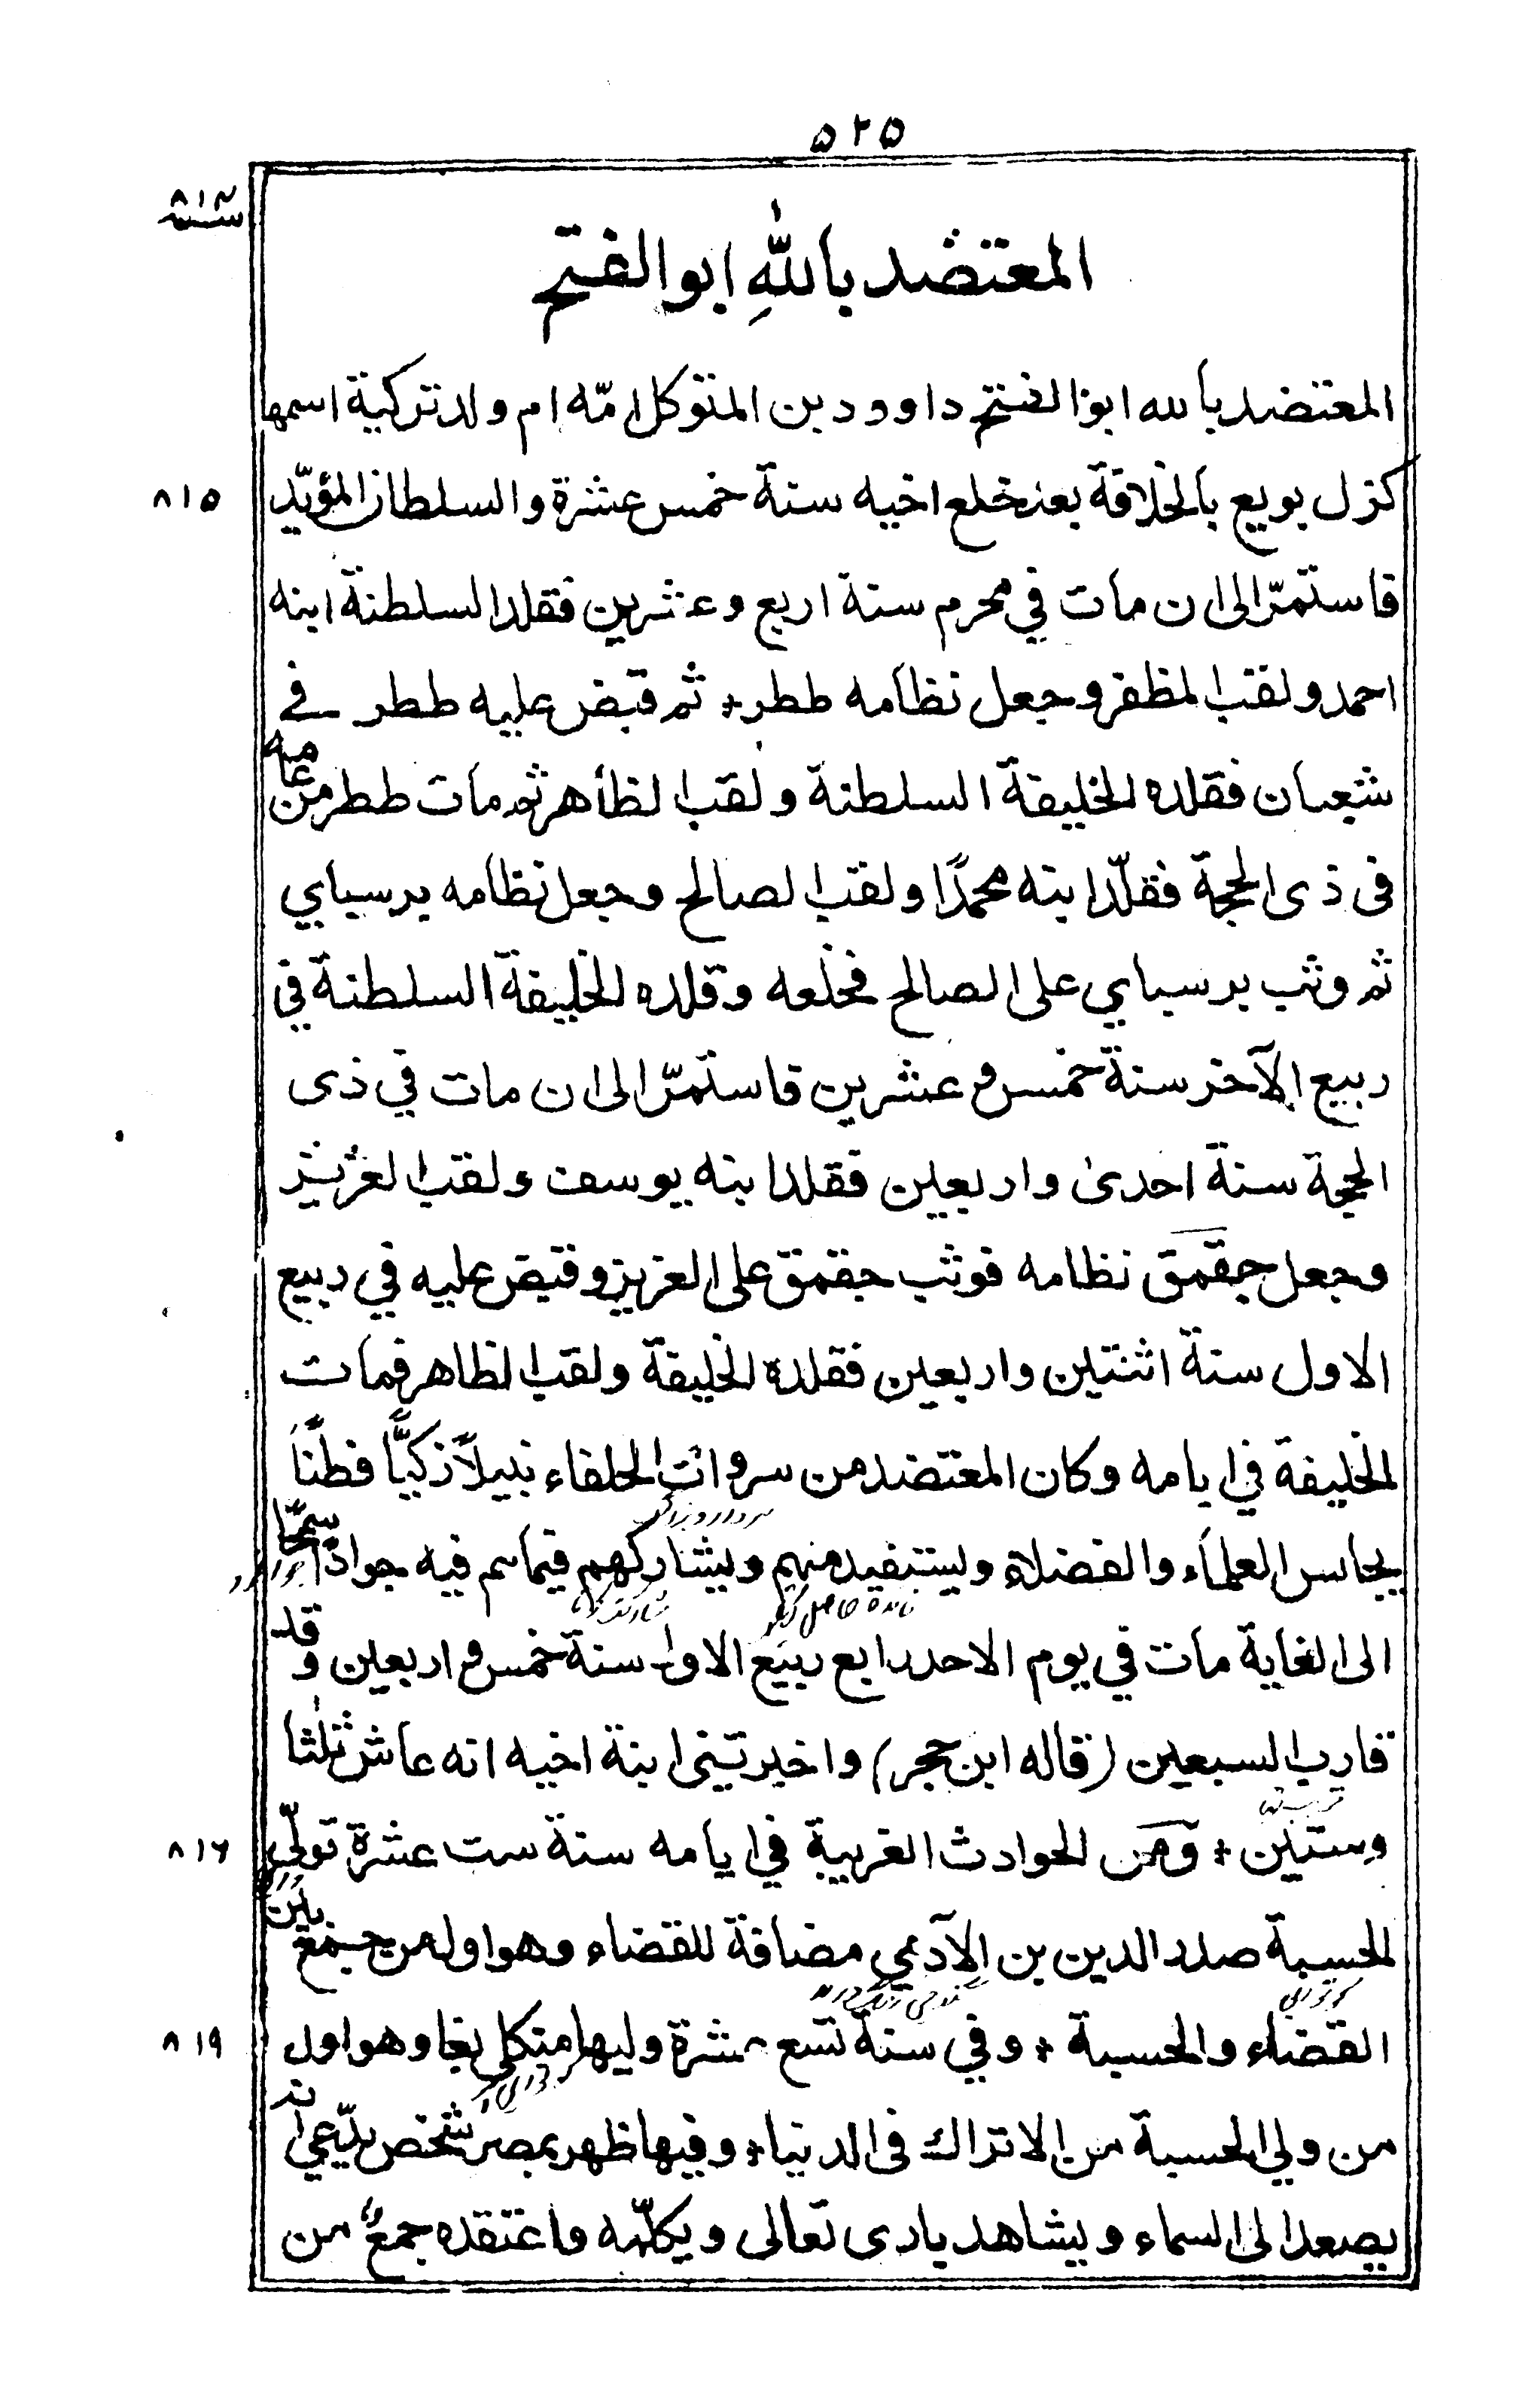 ۵۲۵
سنة
المعتضد بالله ابو الفتح
المعتضد بالله ابو الفتح داوود بن المتوكل امّه ام ولد تركية اسمها
كزل بويع بالخلافة بعد خلع اخيه سنة خمس عشرة والسلطان المؤيّد
۸۱۵
فاستمرّ الى ان مات في محرم سنة اربع وعشرين فقلد السلطنة ابنه
احمد ولقب المظفر وجعل نظامه ططر ثم قبض عليه ططر في
شعبان فقلده الخليفة السلطنة ولقب الظاهر ثم مات ططر من عامه
فى ذى الحجة فقلّد ابنه محمدًا ولقب الصالح وجعل نظامه برسباي
ثم وثب برسباي على الصالح فخلعه وقلده الخليفة السلطنة في
ربيع الآخر سنة خمس وعشرين فاستمرّ الى ان مات في ذى
الحجة سنة احدى واربعين فقلد ابنه يوسف ولقب العزيز
وجعل جقمق نظامه فوثب جقمق على العزيز وقبض عليه في ربيع
الاول سنة اثنتين واربعين فقلده الخليفة ولقب الظاهر فمات
الخليفة في ايامه وكان المعتضد من سروات الخلفاء نبيلاً ذكيًّا فطنًا
يجالس العلماء والفضلاء ويستفيد منهم ويشاركهم فيما هم فيه جوادًا سمحًا
الى الغاية مات في يوم الاحد رابع ربيع الاول سنة خمس واربعين وقد
قارب السبعين (قاله ابن حجر) واخبرتني ابنة اخيه انه عاش ثلثا
وستين ومن الحوادث الغريبة في ايامه سنة ست عشرة تولّى
۸۱۶
الحسبة صدر الدين بن الآدمي مضافة للقضاء وهو اول من جمع بين
القضاء والحسبة وفي سنة تسع عشرة وليها منكلي بغا وهو اول
۸۱۹
من ولي الحسبة من الاتراك فى الدنيا وفيها ظهر بمصر شخص يدّعي انه
يصعد الى السماء ويشاهد بارى تعالى ويكلّمه واعتقده جمعٌ من